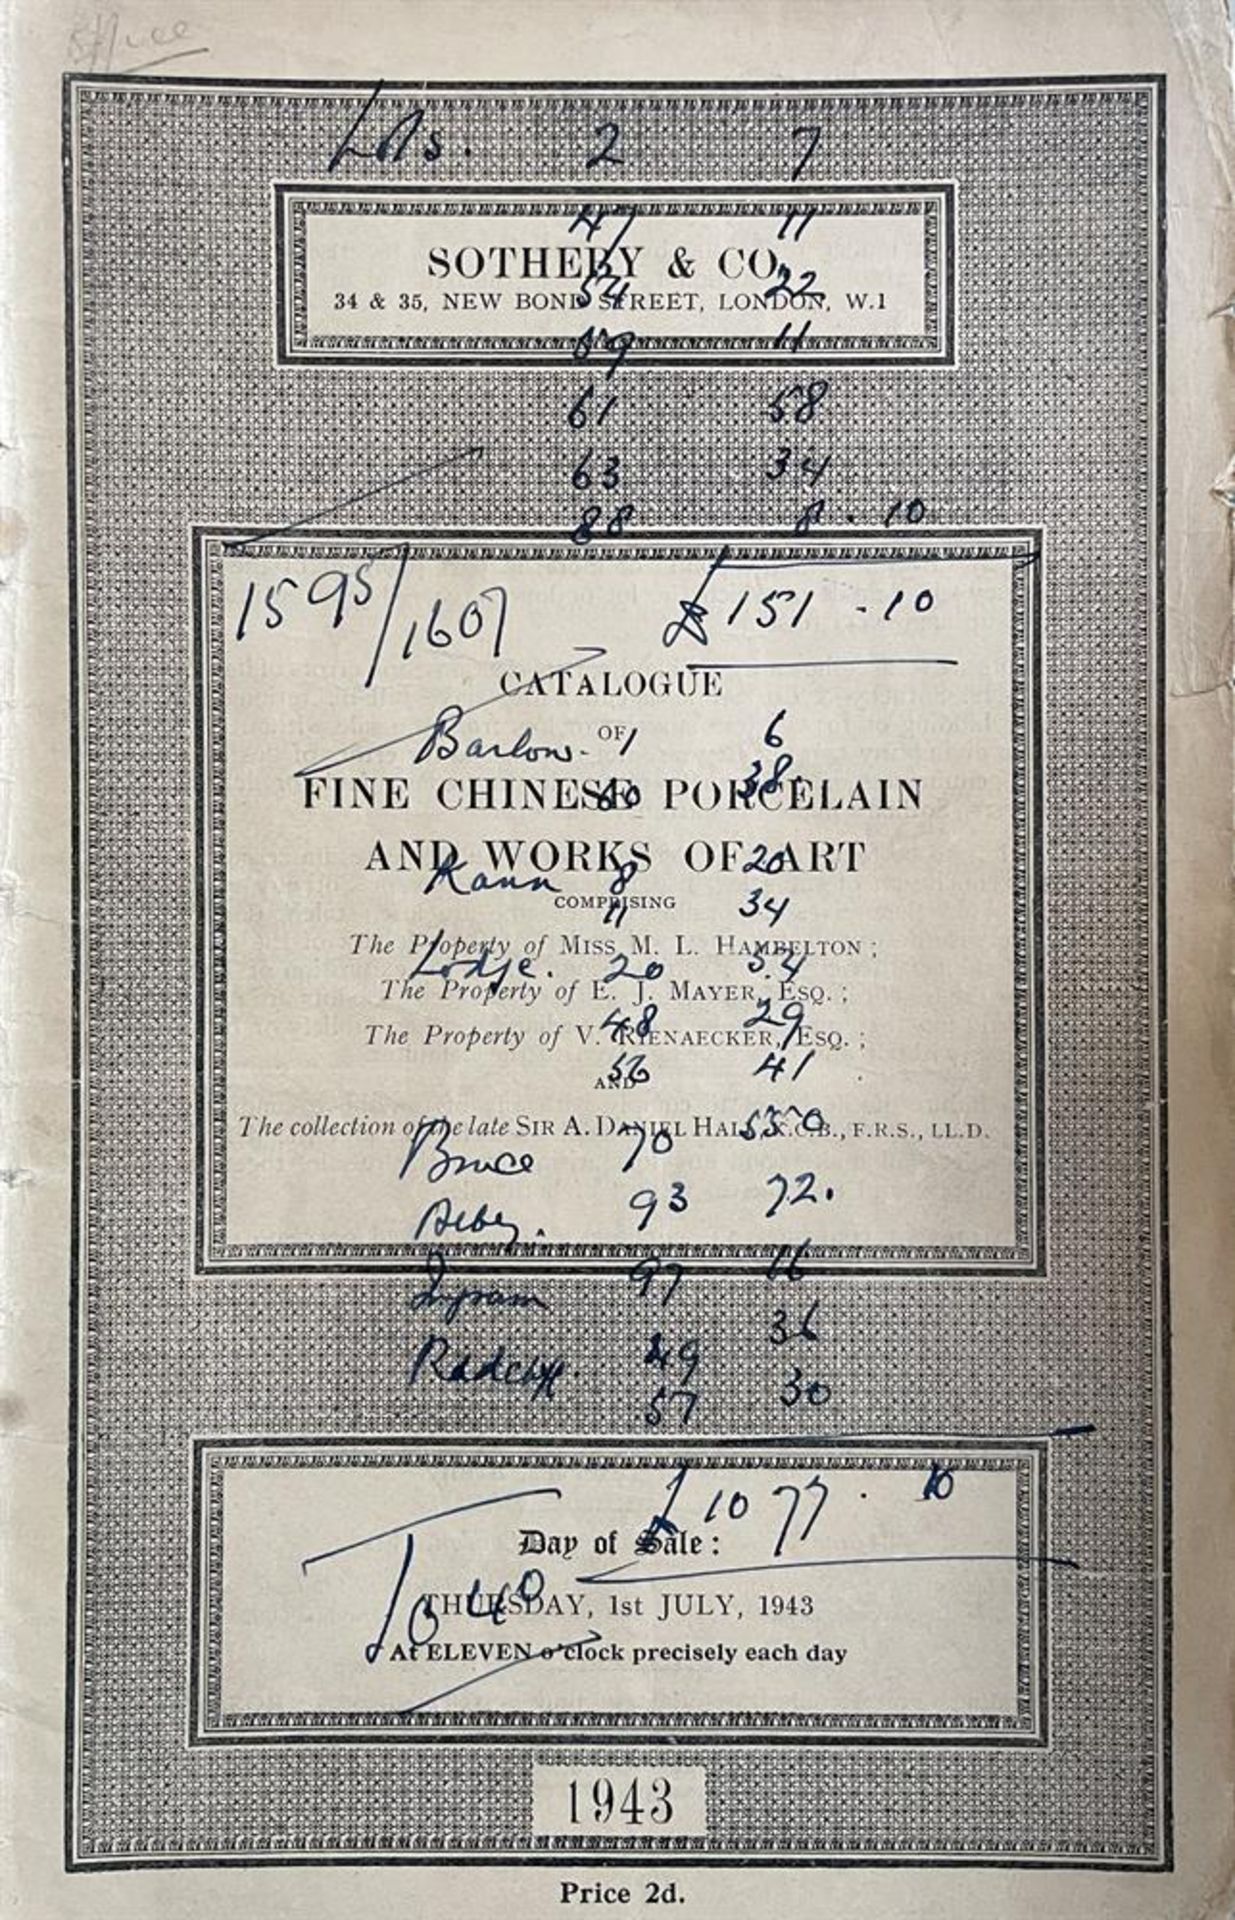 Lots. 2 7
47 11
SOTHEBY & CO.
54 22
34 & 35, NEW BOND STREET, LONDON, W.1
59 11
61 58
63 34
88 8 . 10
1595/1607 £151 - 10
CATALOGUE
OF
Barlow - 1 6
FINE CHINESE PORCELAIN
60 38.
AND WORKS OF ART
Kann 8 20
COMPRISING
11 34
The Property of MISS M. L. HAMBELTON ;
Lodge. 20 34
The Property of E. J. MAYER, ESQ. ;
48 29
The Property of V. RIENAECKER, ESQ. ;
56 41
AND
The collection of the late SIR A. DANIEL HALL, K.C.B., F.R.S., LL.D.
Bruce 70 550
93 72.
Ingram 97 16
36
Radcliffe. 49
57 30
£1077 . 10
Day of Sale:
To 40
THURSDAY, 1st JULY, 1943
At ELEVEN o'clock precisely each day
1943
Price 2d.